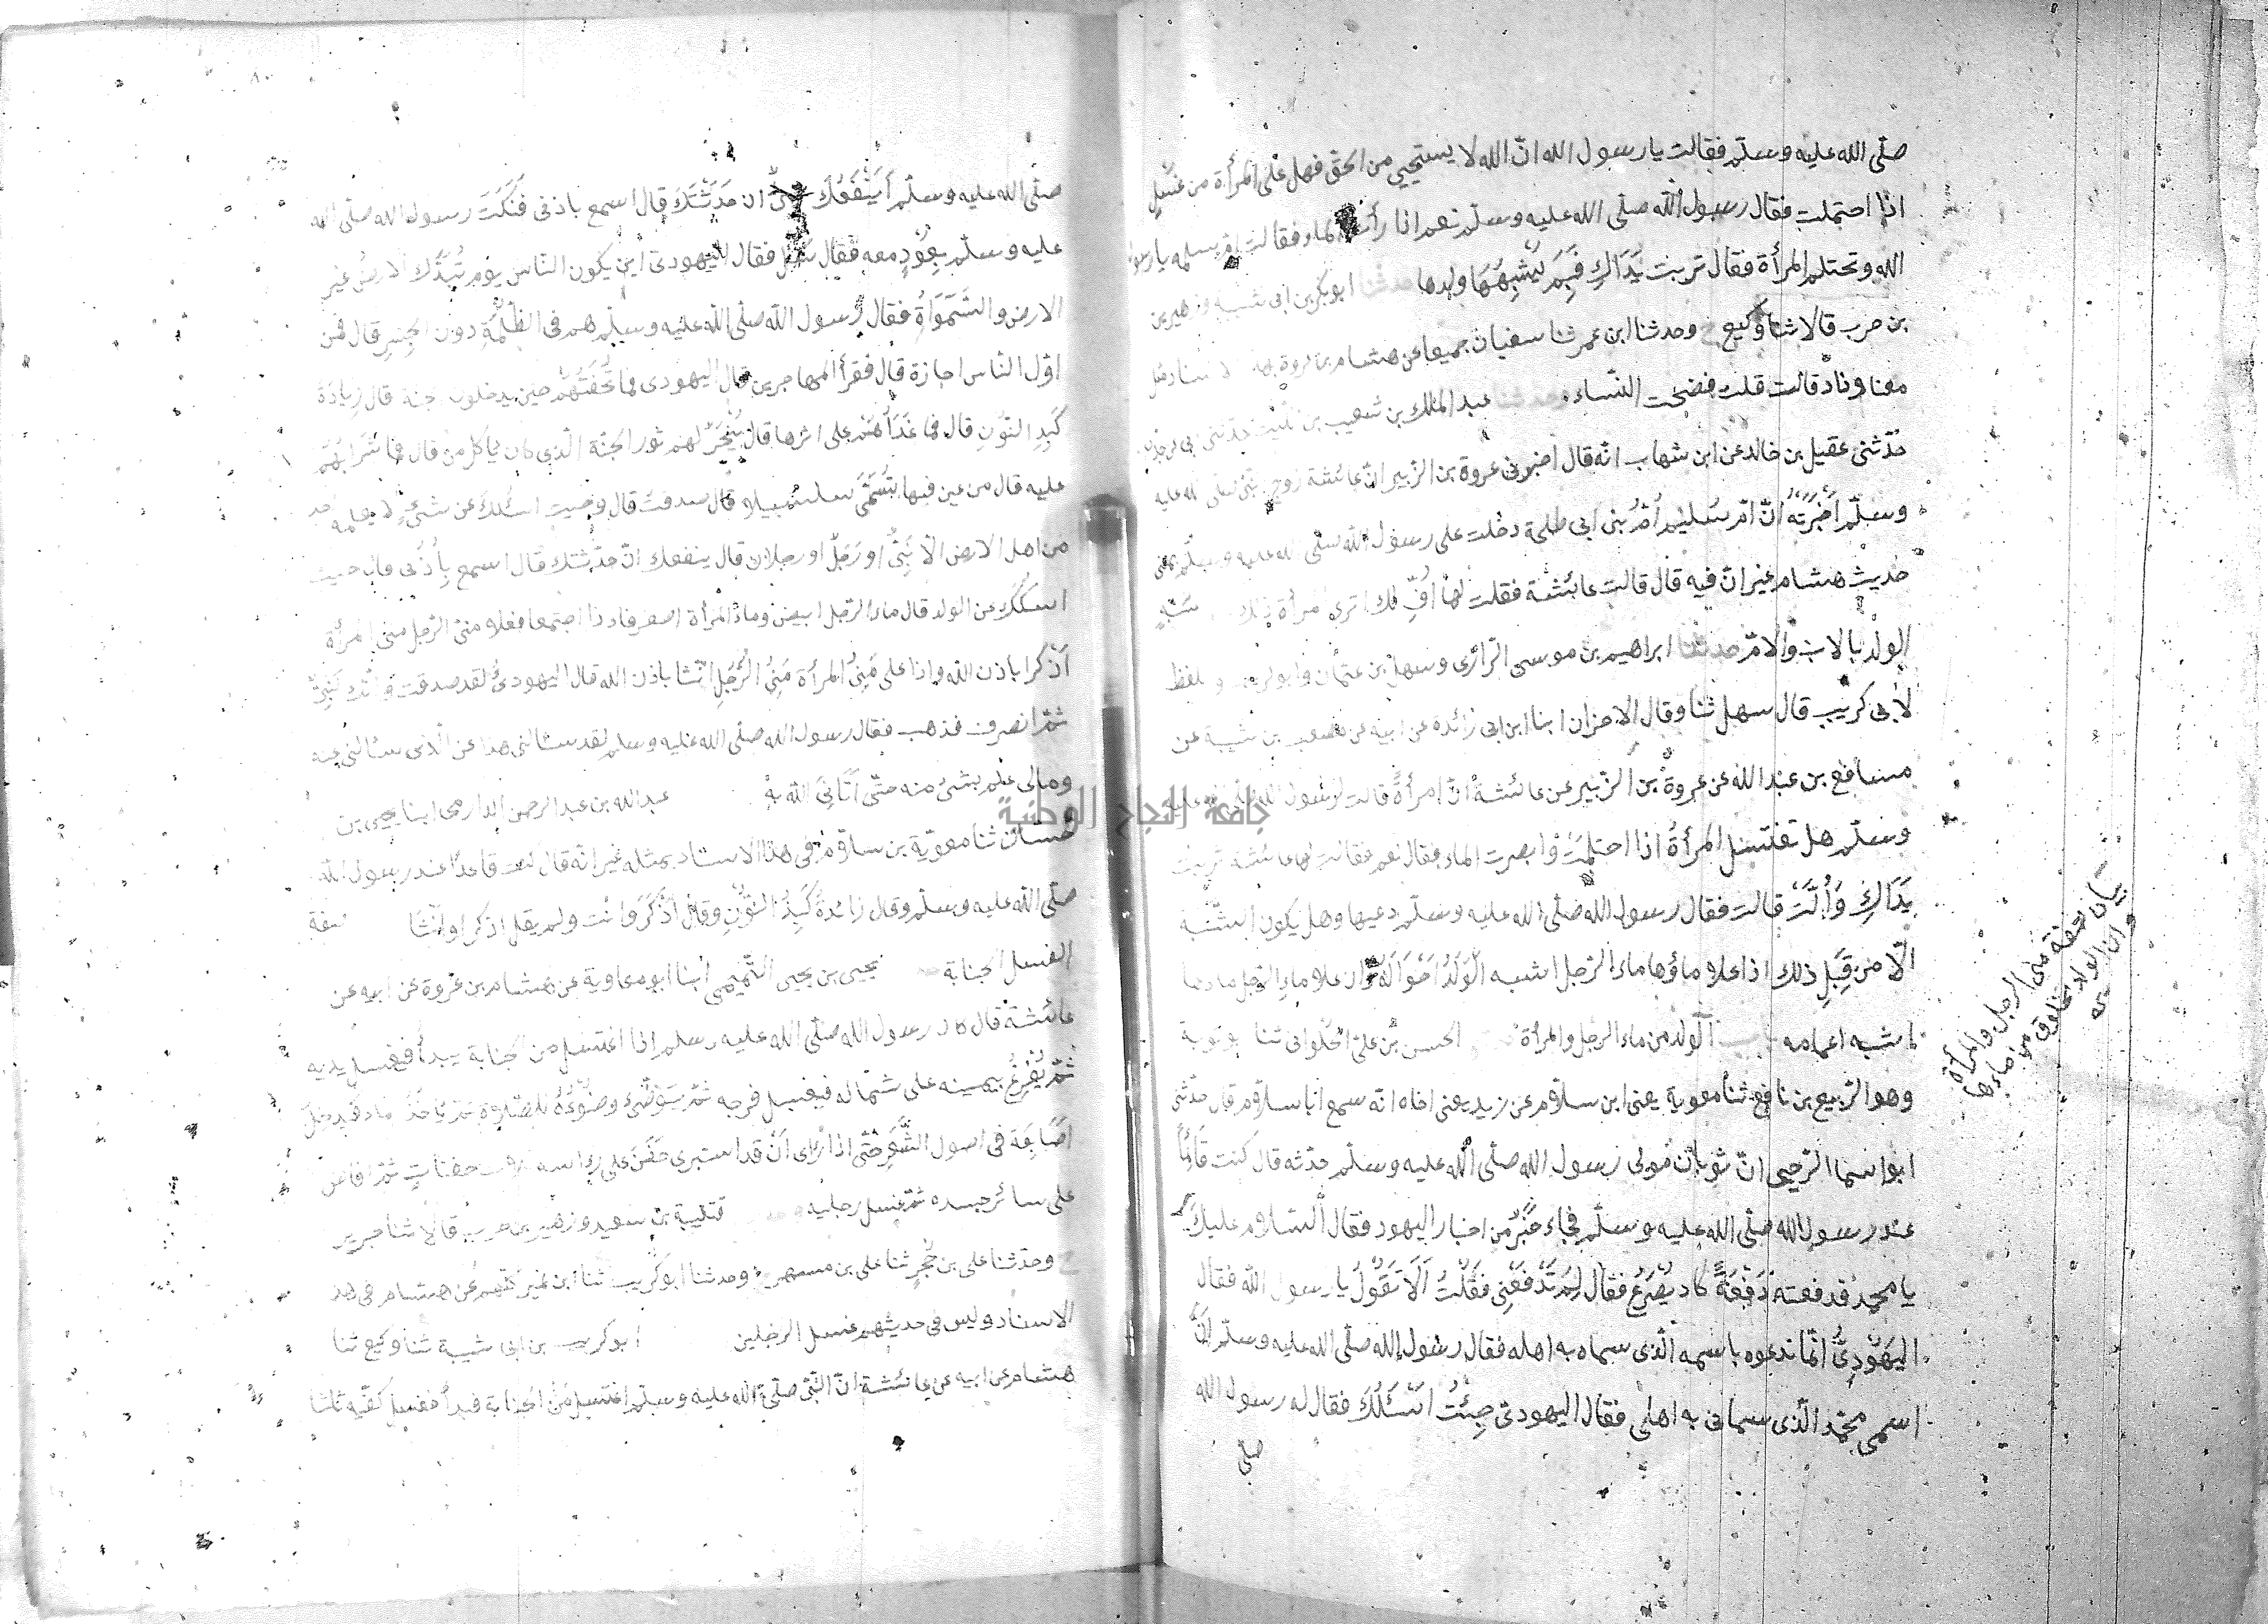 صلى الله عليه وسلم فقالت يا رسول الله ان الله لا يستحيي من الحق فهل على المرأة من غسل
اذا احتملت فقال رسول الله صلى الله عليه وسلم نعم اذا رأت الماء فقالت ام سلمه يا رسول
الله وتحتلم المرأة فقال تربت يَدَاكِ فَبِمَ يُشْبِهُهَا ولدها حدثنا ابو بكر بن ابى شيبه وزهير بن
بن حرب قالا ثنا وكيع ح وحدثنا ابن عمر ثنا سفيان جميعا عن هشام بن عروة بهذا الاسناد مثل
معناه وزاد قالت قلت فضحت النساء وحدثنا عبد الملك بن شعيب بن الليث حدثنى ابى عن جدى
حدثنى عقيل بن خالد عن ابن شهاب انه قال اخبرنى عروة بن الزبير ان عائشة زوج النبى صلى الله عليه
وسلم أَخْبَرَتْهُ انّ امّ سُليم أمّ بنى ابى طلحة دخلت على رسول الله صلى الله عليه وسلم بمعنى
حديث هشام غير ان فيه قال قالت عائشة فقلت لها أُفٍّ لك اترى المرأة ذلك شبه
الولد بالاب والامّ حدثنا ابراهيم بن موسى الرازى وسهل بن عثمان وابو كريب واللفظ
لأبى كريب قال سهل ثنا وقال الاخران ابنا ابن ابى زائدة عن ابيه عن مصعب بن شيبة عن
مسافع بن عبد الله عن عروة بن الزبير عن عائشة انّ امرأةً قالت لرسول الله صلى الله عليه
وسلم هل تغتسل المرأةُ اذا احتلمَتْ وابصرت الماء فقال نعم فقالت لها عائشة تربت
يَدَاكِ وَأُلَّتْ قالت فقال رسول الله صلى الله عليه وسلم دعيها وهل يكون الشَّبَه
الّا من قِبَلِ ذلك اذا علا ماؤها ماء الرجل اشبه الْوَلَدُ اَخْوَالَهُ وان علا ماء الرجل ماءها
اشبه اعمامه الولد من ماء الرجل والمرأة الحسن بن علىّ الحُلْوانى ثنا ابو توبة
وهو الربيع بن نافع ثنا معوية يعنى ابن سلّام عن زيد يعنى اخاه انه سمع ابا سلام قال حدثنى
ابو اسما الرحبى انّ ثوبان مولى رسول الله صلى الله عليه وسلم حدثه قال كنت قائماً
عند رسول الله صلى الله عليه وسلم فجاء حَبْرٌ من احبار اليهود فقال السلام عليك
يا محمد فدفعته دَفْعَةً كاد يُصْرَعُ فقال لِمَ تَدْفَعُنِى فَقُلْتُ اَلَا تَقُولُ يا رسول الله فقال
اليَهُودِىُّ انّما ندعوه باسمه الّذى سماه به اهله فقال رسول الله صلى الله عليه وسلم انّ
اسمى محمد الّذى سمانى به اهلى فقال اليهودى جِئْتُ اَسْئَلُكَ فقال له رسول الله
صلى
بيان صفة منى الرجل والمرأة
وان الولد مخلوق من ماءها
٨٠
صلى الله عليه وسلم اَيَنْفَعُكَ شئ ان حَدَّثْتُكَ قال اسمع باذنى فَنَكَتَ رسول الله صلى الله
عليه وسلم بِعُودٍ معه فقال سَلْ فقال اليهودى اين يكون الناس يوم تُبَدَّلُ الارض غير
الارض والسَّمَوَاةُ فقال رسول الله صلى الله عليه وسلم هم فى الظُّلْمَةِ دون الجسر قال فمن
اوّل الناس اجازة قال فقرأ المهاجرين قال اليهودى فما تُحْفَتُهُمْ حين يدخلون الجنه قال زِيَادَةُ
كَبِدِ النُّونِ قال فما غَذَاؤُهُمْ على اثرها قال يُنْحَرُ لهم ثور الجنّة الّذى كان يأكل من قال فما شَرَابُهُمْ
عليه قال من عين فيها تُسَمَّى سلسبيلا قال صدقت قال وجيت اسئلك عن شئٍ لا يعلمه احد
من اهل الارض الّا نَبِىٌّ او رَجُلٌ او رجلان قال ينفعك انْ حدّثتك قال اسمع بِأُذُنى قال جيت
اسئلك عن الولد قال ماء الرجل ابيض وماء المرأة اصفر فاذا اجتمعا فعلا منىّ الرجل منى المرأة
أَذْكَرا باذن الله واذا على مَنِىُّ المرأة مَنِىَّ الرَّجُلِ انّثا باذن الله قال اليهودى لقد صدقت وانّك لنبىٌّ
ثمّ انصرف فذهب فقال رسول الله صلى الله عليه وسلم لقد سئالنى هذا عن الّذى سئالنى عنه
ومالى علم بشئ منه حتّى أَتَانِىَ اللهُ بِهْ عبد الله بن عبد الرحمن الدارمى ابنا يحيى بن
حسّان ثنا معوية بن سلّام فى هذا الاسناد بمثله غير انه قال كنت قاعدا عند رسول الله
صلّى الله عليه وسلم وقال زائدةُ كَبِدُ النُّونِ وقال أَذْكَرَ وانث ولم يقل اذكرا وانّثا صفة
الغسل الجنابة يحيى بن يحيى التميمى انبا ابو معاوية عن هشام بن عروة عن ابيه عن
عائشة قال كان رسول الله صلى الله عليه وسلم اذا اغتسل من الجنابة يبدأ فيغسل يديه
ثمّ يُفْرِغُ بيمينه على شماله فيغسل فرجه ثمّ يتوضّئ وضوءُهُ للصّلاة ثمّ يأخذ الماء فيدخل
اَصَابِعَهُ فى اصول الشَّعَرِ حَتّى اذا رأى اَنْ قد استبرى حَفَنَ على رأسه ثلاث حفنات ثمّ افاض
على سائر جسده ثمّ غسل رجليه وحدثنا قتيبة بن سعيد وزهير بن حرب قالا ثنا جرير
ح وحدثنا على بن حُجْرٍ ثنا على بن مسهر ح وحدثنا ابو كريب ثنا ابن نمير كلّهم عن هشام فى هذا
الاسناد وليس فى حديثهم غسل الرجلين ابو كريب بن ابى شيبة ثنا وكيع ثنا
هشام عن ابيه عن عائشة انّ النّبى صلى الله عليه وسلم اغتسل مِنَ الجنابة فبدأ فغسل كفّيه ثلثا
جامعة النجاح الوطنية